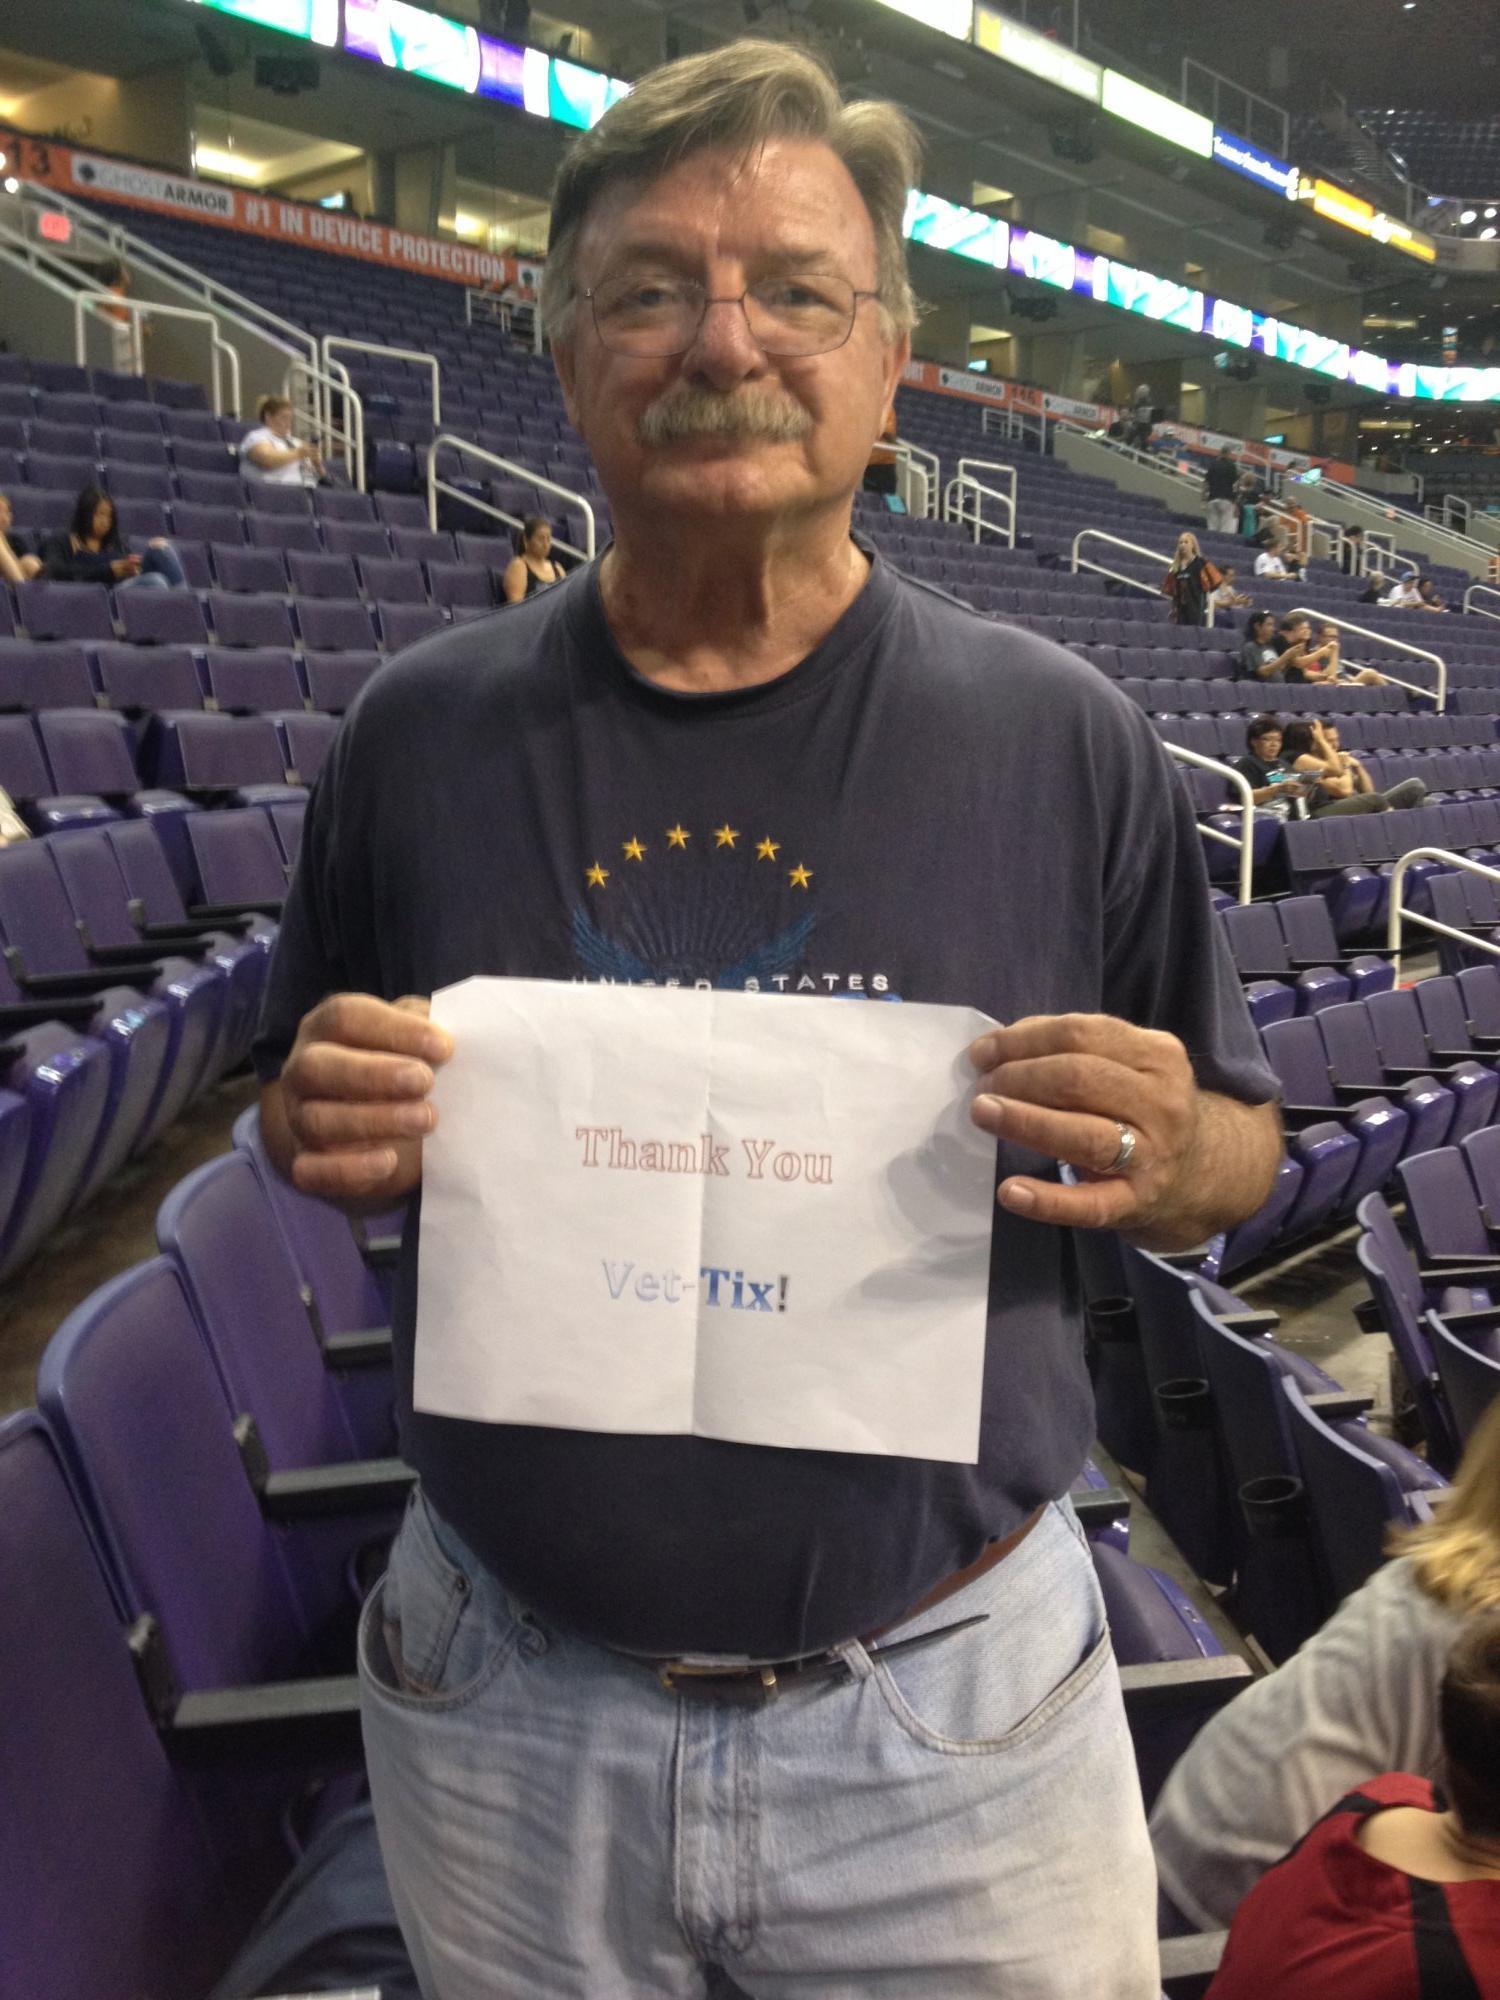 13
GHOSTARMOR #1 IN DEVICE PROTECTION
GHOSTARMOR
UNITED STATES
Thank You
Vet-Tix!